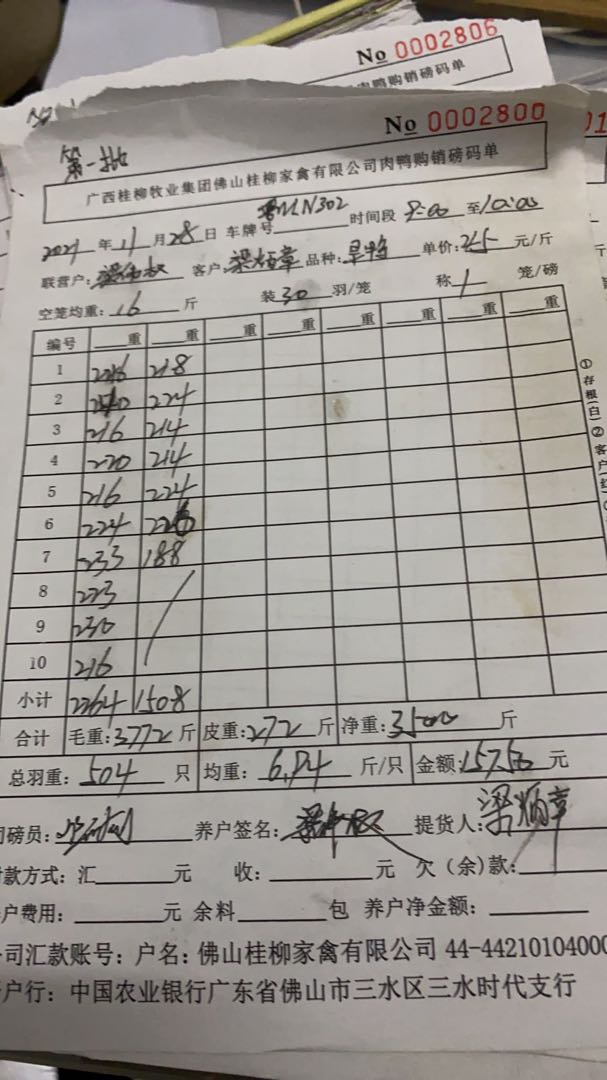 No 0002806
肉鸭购销磅码单
No 0002800
第一批
广西桂柳牧业集团佛山桂柳家禽有限公司肉鸭购销磅码单
2021 年 11 月 28 日 车牌号 N302 时间段 8:00 至 10:00
联营户: 客户: 梁炳章 品种: 旱鸭 单价: 4.5 元/斤
空笼均重: 16 斤 装 30 羽/笼 称 1 笼/磅
编号 重 重 重 重 重 重 重
1 226 218
2 224
3 216 214
4 220 214
5 216 224
6 224 226
7 233 188
8 223
9 230
10 216
小计 2264 1508
合计 毛重: 3772 斤 皮重: 272 斤 净重: 3500 斤
总羽重: 504 只 均重: 6.94 斤/只 金额: 15750 元
司磅员: 养户签名: 提货人: 梁炳章
付款方式: 汇 元 收: 元 欠(余)款:
户费用: 元 余料 包 养户净金额:
司汇款账号: 户名: 佛山桂柳家禽有限公司 44-44210104000
户行: 中国农业银行广东省佛山市三水区三水时代支行
①存根(白)②客户(红)